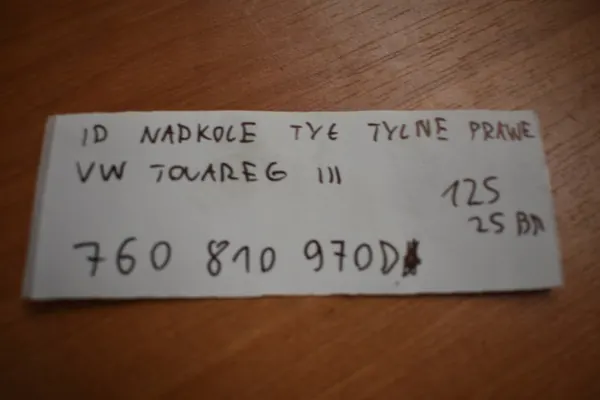 ID NADKOLE TYŁ TYLNE PRAWE
VW TOUAREG III
125
25 BA
760 810 970D